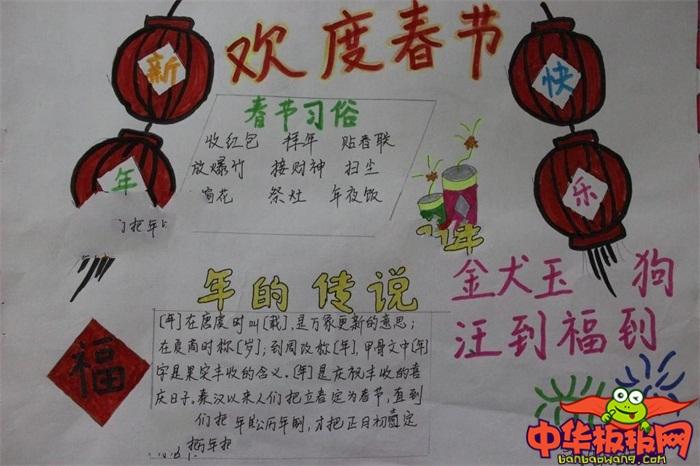 欢度春节
新
年
快
乐
春节习俗
收红包 拜年 贴春联
放爆竹 接财神 扫尘
窗花 祭灶 年夜饭
年的传说
[年]在唐虞时叫[载],是万象更新的意思;
在夏商时称[岁];到周改称[年],甲骨文中[年]
字是果实丰收的含义。[年]是庆祝丰收的喜
庆日子,秦汉以来人们把立春定为春节,直到
们把
年
公历年制,才把正月初壹定
福
金犬玉 狗
汪到福到
中华板报网
banbaowang.com